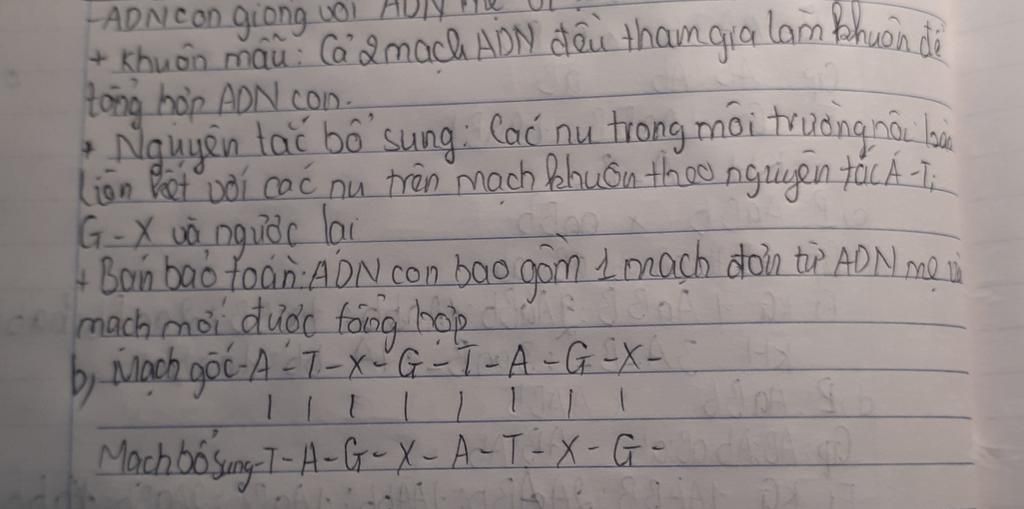 -ADN con giống với ADN mẹ
+ Khuôn mẫu: Cả 2 mạch ADN đều tham gia làm khuôn để
tổng hợp ADN con.
+ Nguyên tắc bổ sung: Các nu trong môi trường nội bào
liên kết với các nu trên mạch khuôn theo nguyên tắc A-T;
G-X và ngược lại
+ Bán bảo toàn: ADN con bao gồm 1 mạch đơn từ ADN mẹ và
mạch mới được tổng hợp
b, Mạch gốc-A-T-X-G-T-A-G-X-
| | | | | | | |
Mạch bổ sung-T-A-G-X-A-T-X-G-